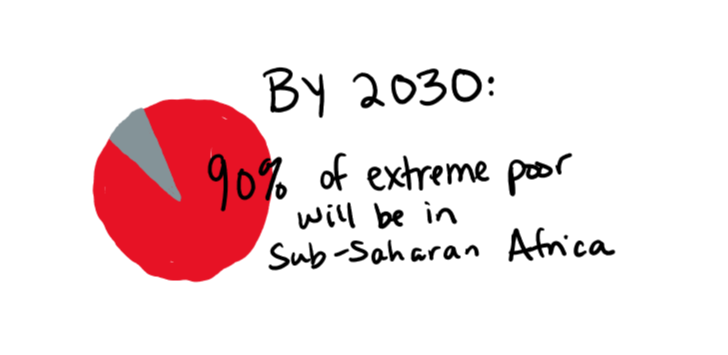 By 2030:
90% of extreme poor
will be in
Sub-Saharan Africa